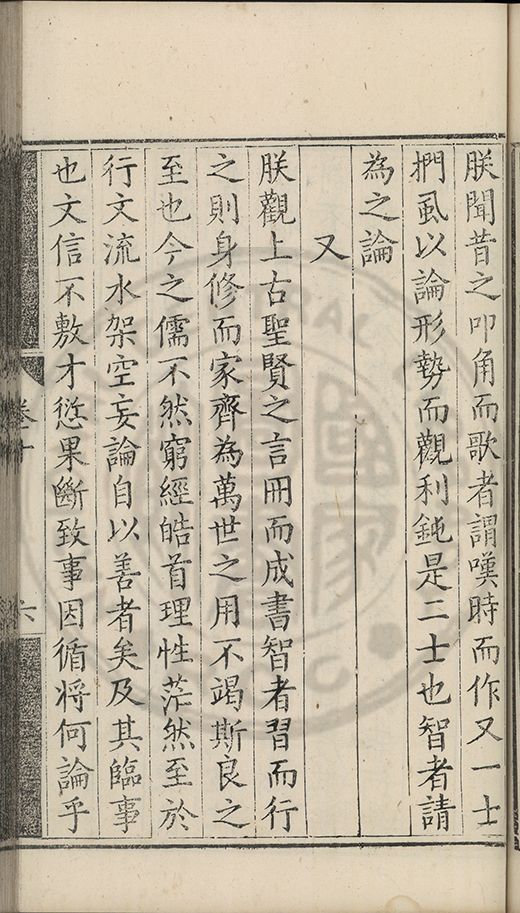 朕聞昔之叩角而歌者謂嘆時而作又一士
捫虱以論形勢而觀利鈍是二士也智者請
為之論
又
朕觀上古聖賢之言冊而成書智者習而行
之則身修而家齊為萬世之用不竭斯良之
至也今之儒不然窮經皓首理性茫然至於
行文流水架空妄論自以善者矣及其臨事
也文信不敷才愆果斷致事因循將何論乎
卷十
六